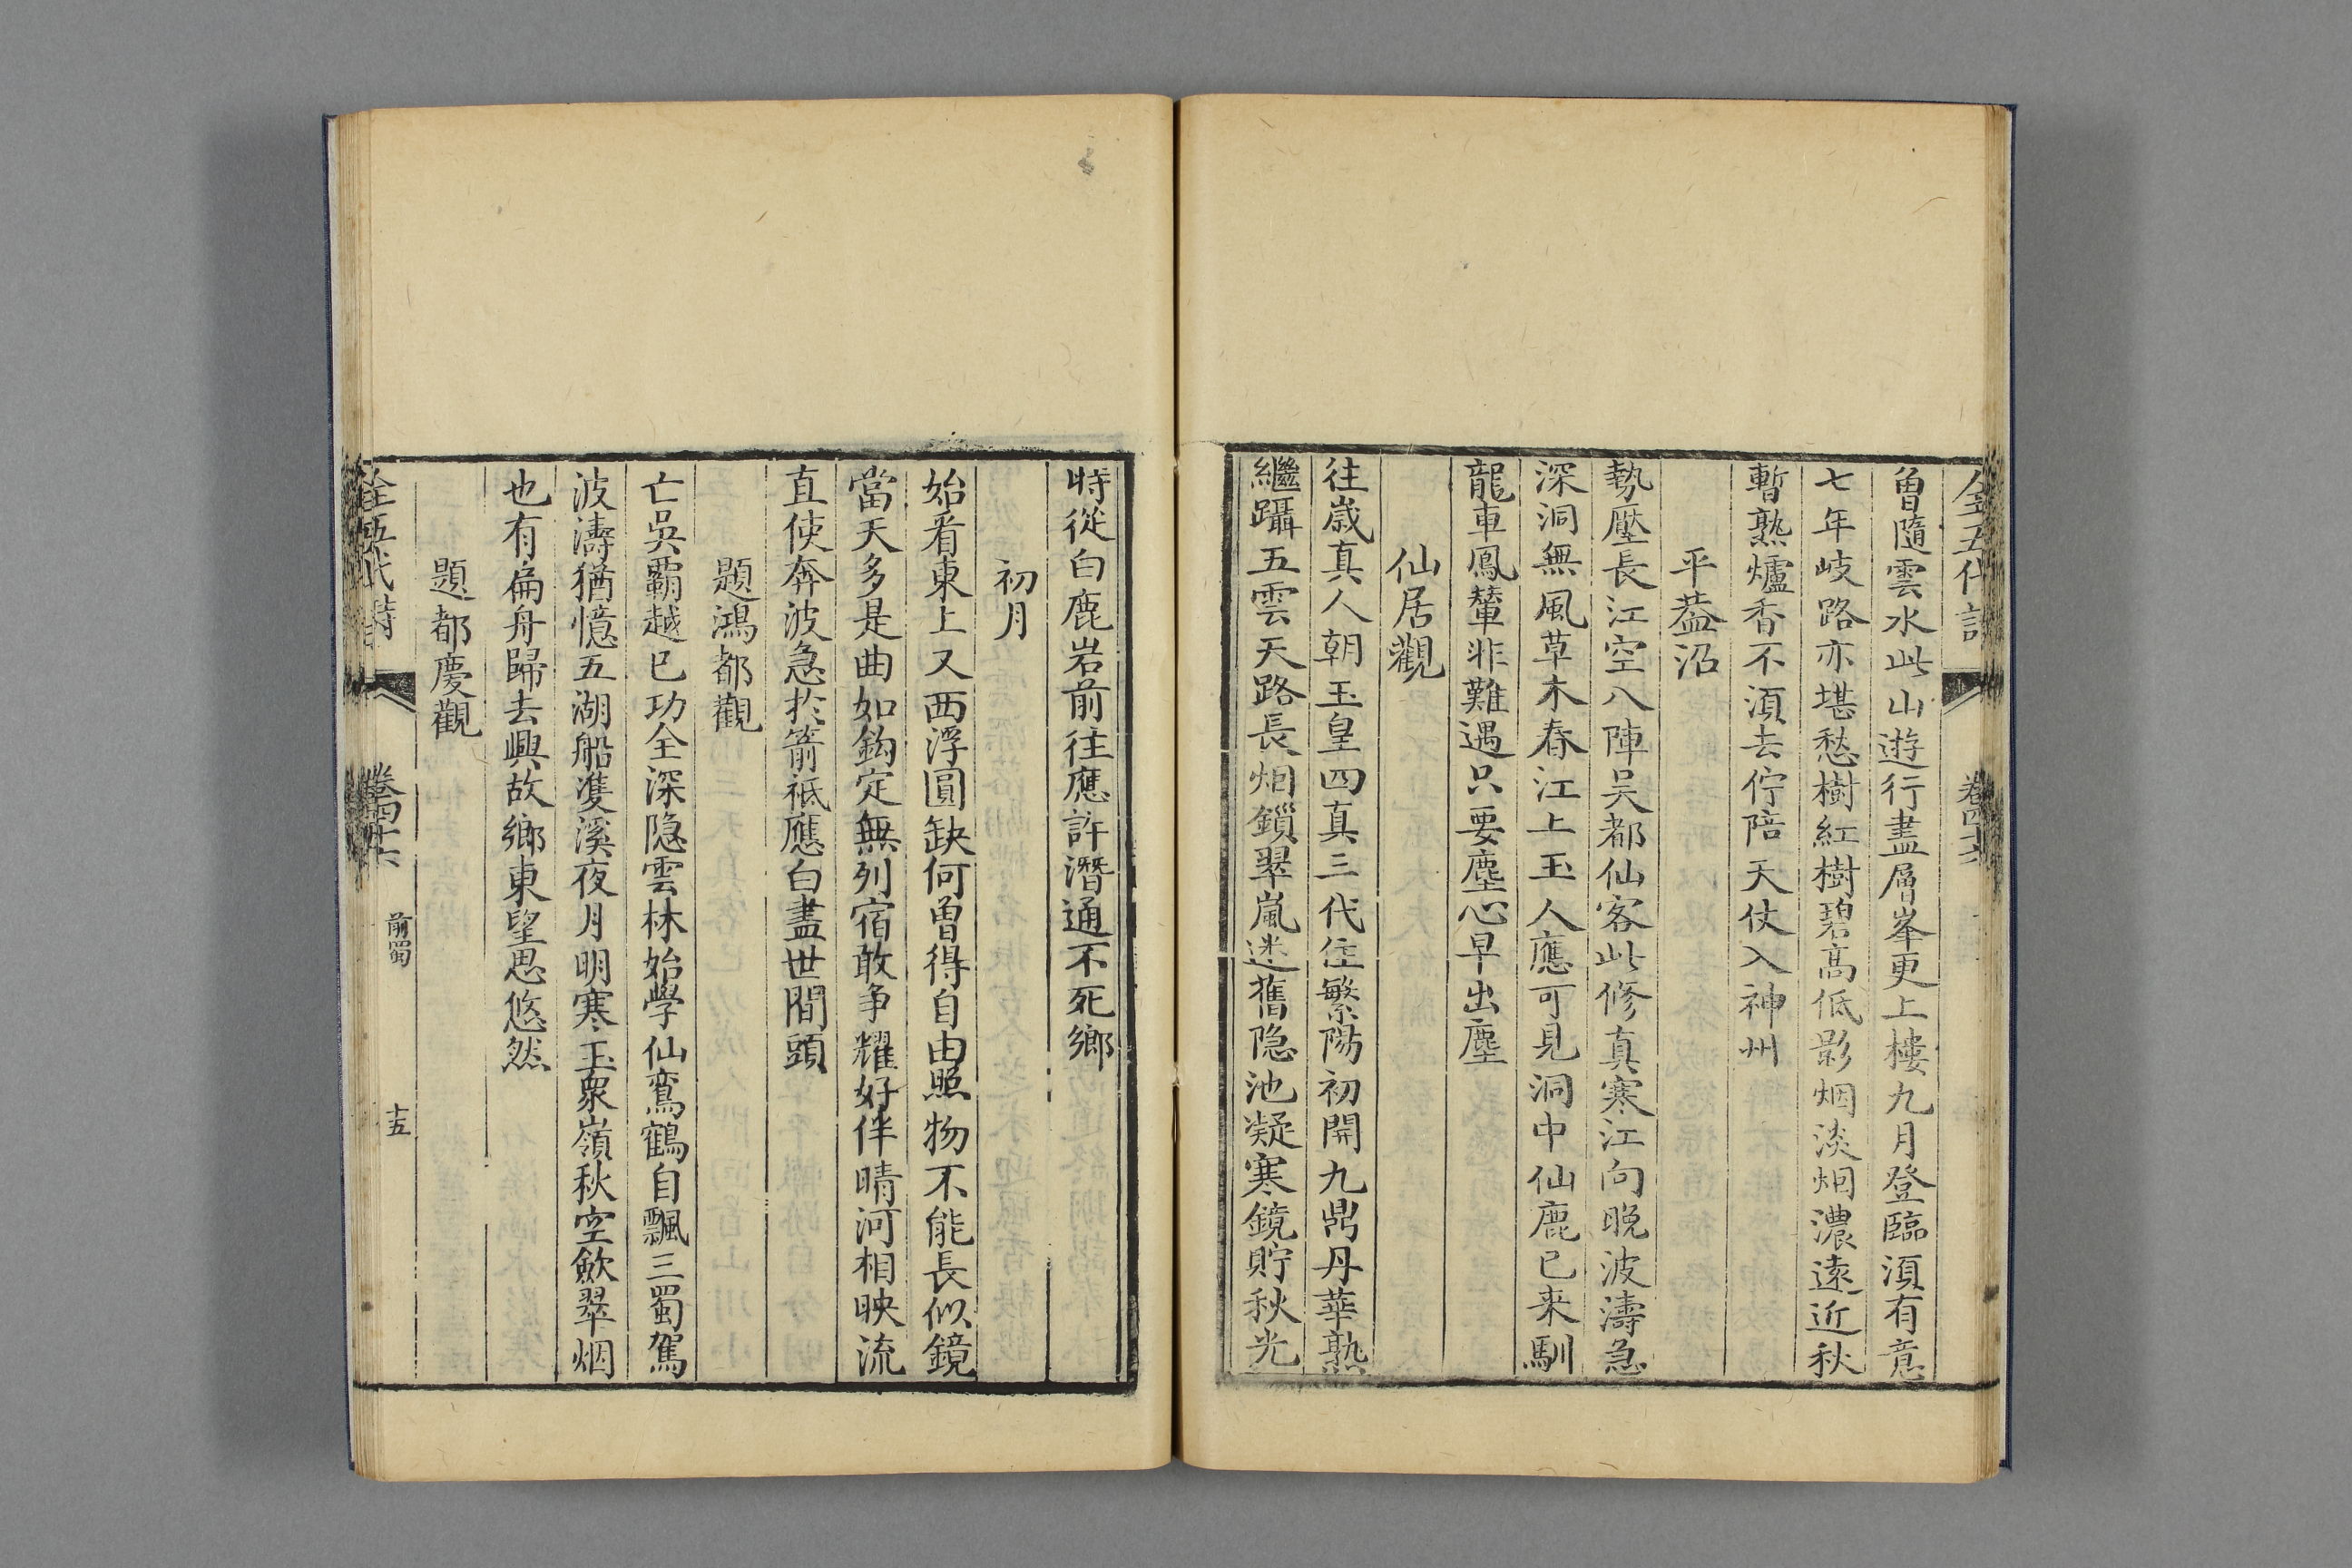 全五代詩 卷四十六
曾隨雲水此山遊行盡層峯更上樓九月登臨須有意
七年岐路亦堪愁樹紅樹碧高低影烟淡烟濃遠近秋
暫熟爐香不須去佇陪天仗入神州
平葢沼
勢壓長江空八陣吴都仙客此修真寒江向晚波濤急
深洞無風草木春江上玉人應可見洞中仙鹿已来馴
龍車鳳輦非難遇只要塵心早出塵
仙居觀
往歲真人朝玉皇四真三代住繁陽初開九鼎丹華熟
繼躡五雲天路長烟鎖翠嵐迷舊隐池凝寒鏡貯秋光
時從白鹿岩前往應許潛通不死鄉
初月
始看東上又西浮圓缺何曾得自由照物不能長似鏡
當天多是曲如鈎定無列宿敢争耀好伴晴河相映流
直使奔波急於箭祗應白盡世間頭
題鴻都觀
亡吳霸越已功全深隐雲林始學仙鸞鶴自飄三蜀駕
波濤猶憶五湖船雙溪夜月明寒玉衆嶺秋空歛翠烟
也有扁舟歸去興故鄉東望思悠然
題都慶觀
全五代詩 卷四十六 前蜀 十五